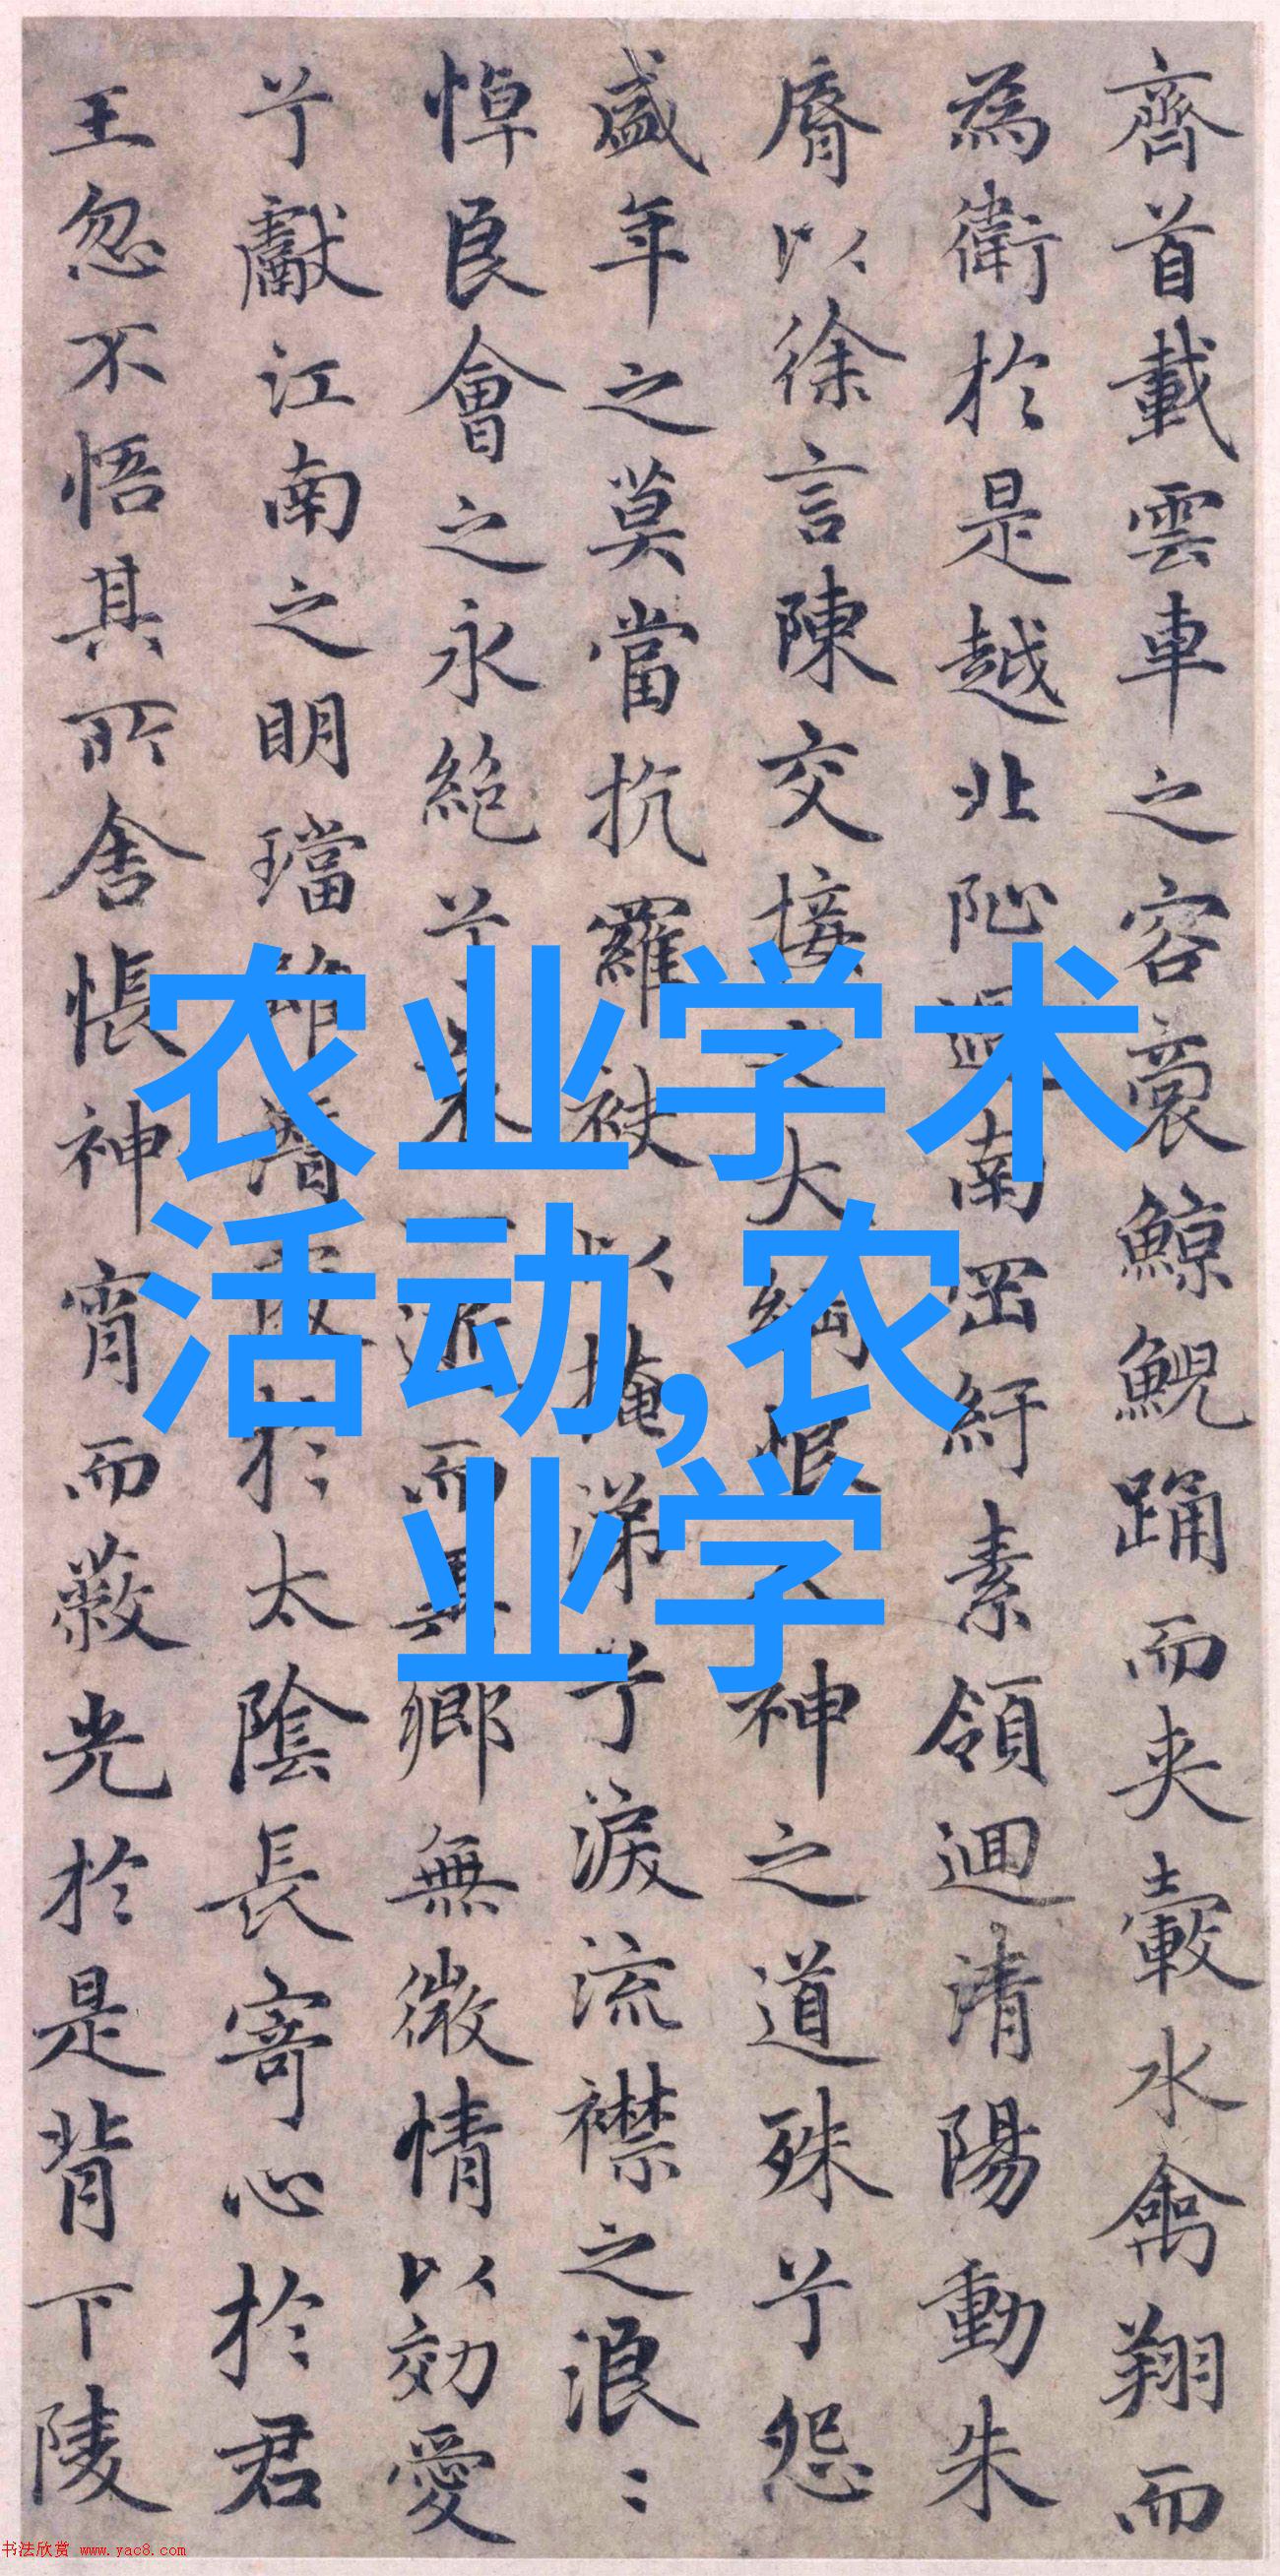 齊首載雲車之容裔鯨鯢踊而夾轂水禽翔而
為衛於是越北沚過南岡紆素領迴清陽動朱
脣以徐言陳交接之大綱恨人神之道殊兮怨
盛年之莫當抗羅袂以掩涕兮淚流襟之浪〻
悼良會之永絶兮哀一逝而異鄉無微情以効愛
兮獻江南之明璫雖潛處於太陰長寄心於君
王忽不悟其所舍悵神宵而蔽光於是背下陵
农业学术
活动,农
业学
书法欣赏 www.yac8.com